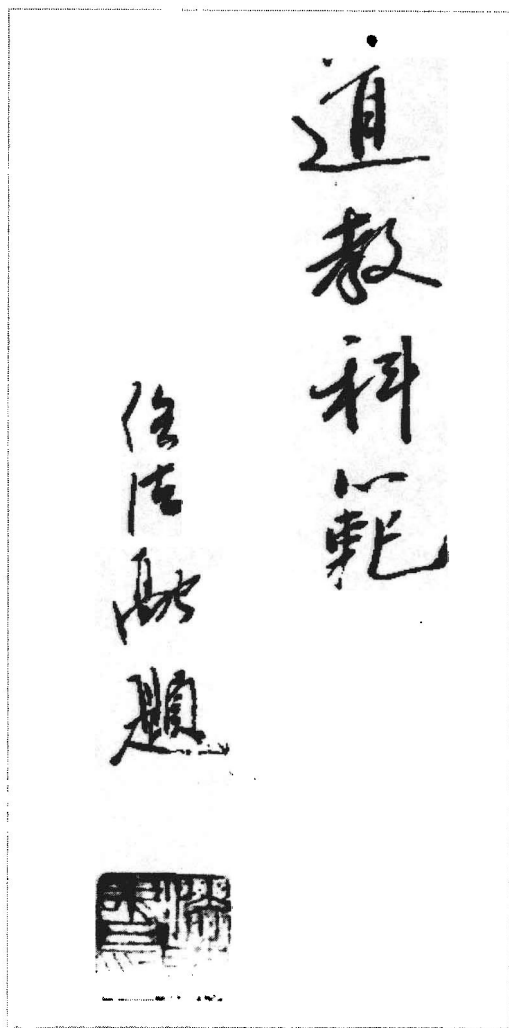 道教科範
任法融題